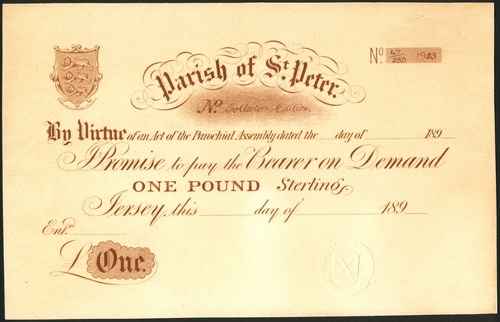 No. 67/250 1983
Parish of St. Peter.
No. Collectors Edition.
By Virtue of an Act of the Parochial Assembly dated the day of 189
I Promise to pay the Bearer on Demand
ONE POUND Sterling,
Jersey, this day of 189
Entd.
£ One.